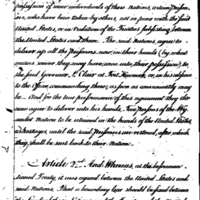 possession of some individuals of these Nations, certain Persons,
who have been taken by others, not in peace with the said
United States, or in violation of the Treaties subsisting between
the United States and them. The said Nations agree to
deliver up all the Persons, now in their hands (by what
means soever they may have come into their possession) to
the said Governor St. Clair at Fort Harmar, or, in his absence
to the Officer commanding there, as soon as conveniently may
be. And for the true performance of this agreement they do
now agree to deliver into his hands, Two Persons of the Wy-
andot Nation to be retained in the hands of the United States,
as Hostages, until the said Prisoners are restored, after which
they shall be sent back to their Nation.
Article 2nd. And Whereas, at the before men-
tioned Treaty it was agreed between the United States and
said Nations, That a boundary line should be fixed between